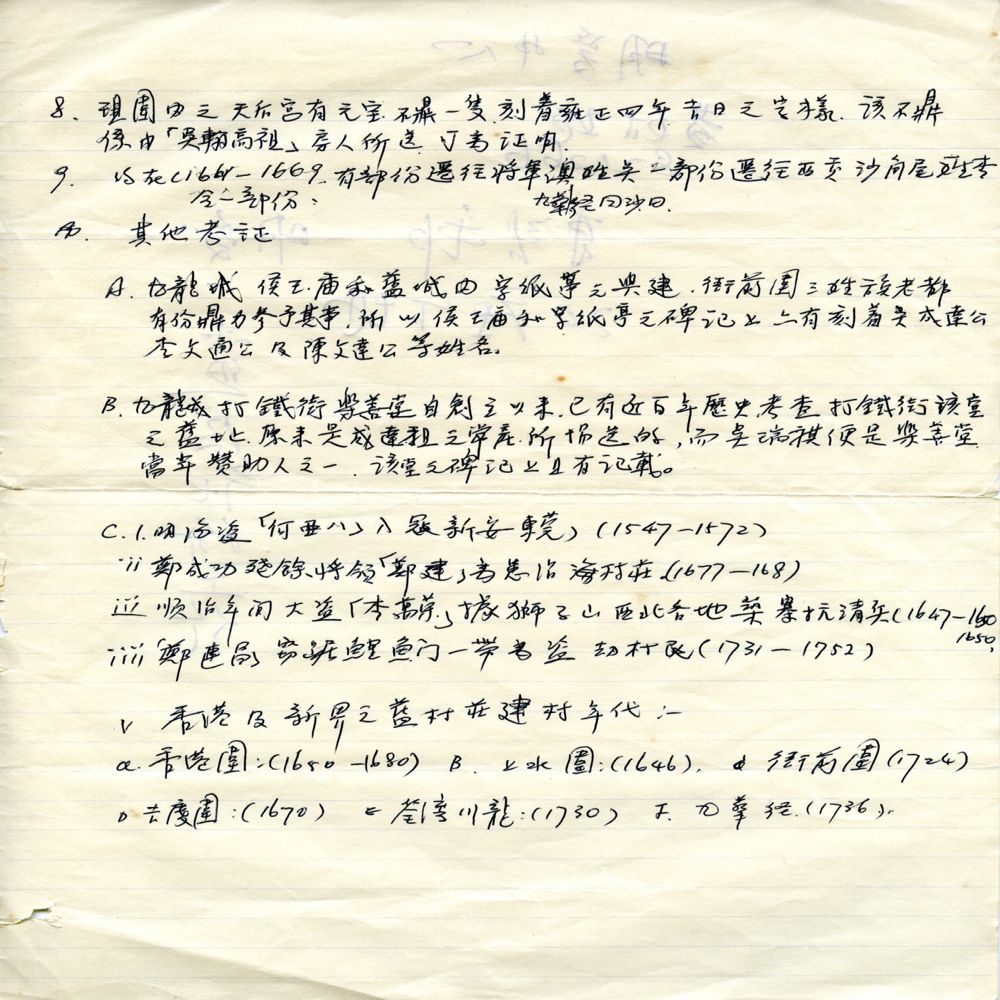 8. 現圍內之天后宮有元宝不鼎一隻刻着雍正四年吉日之字樣. 該不鼎
係由「吳翰高祖」房人所送, 可為証明.
9. 約在(1661-1669. 有部份遷往將軍澳姓吳 一部份遷往西貢沙角尾姓李
令一部份: 九華徑同沙田.
其他考証
A. 九龍城 侯王庙和旧城內字紙亭之興建. 衙前圍三姓族老都
有份鼎力参予其事, 所以侯王庙和字紙亭之碑記上亦有刻着吳成達公
李文通公及陳文達公等姓名。
B. 九龍城打鐵街樂善堂自創立以來, 已有近百年歷史, 考查打鐵街該堂
之旧址, 原來是成達祖之嘗產所捐送的, 而吳瑞祺便是樂善堂
當年贊助人之一, 該堂之碑記上且有記載。
C. i. 明海盗「何亜八」入冦新安東莞, (1547-1572)
ii 鄭成功残餘將領「鄭建」為患沿海村莊. (1677-168)
iii 順治年间大盗「李萬荣」據獅子山西北各地築寨抗清兵(1647-1650
1650,
iiii 鄭連昌, 窃踞鯉魚门一帶為盗 刧村民(1731-1752)
V 香港及新界之旧村莊建村年代:-
a. 香港圍:(1650-1680) B. 上水圍:(1646). 衙前圍(1724)
D 吉慶圍:(1670) E 荃湾川龍:(1730) F. 九華径.(1736).